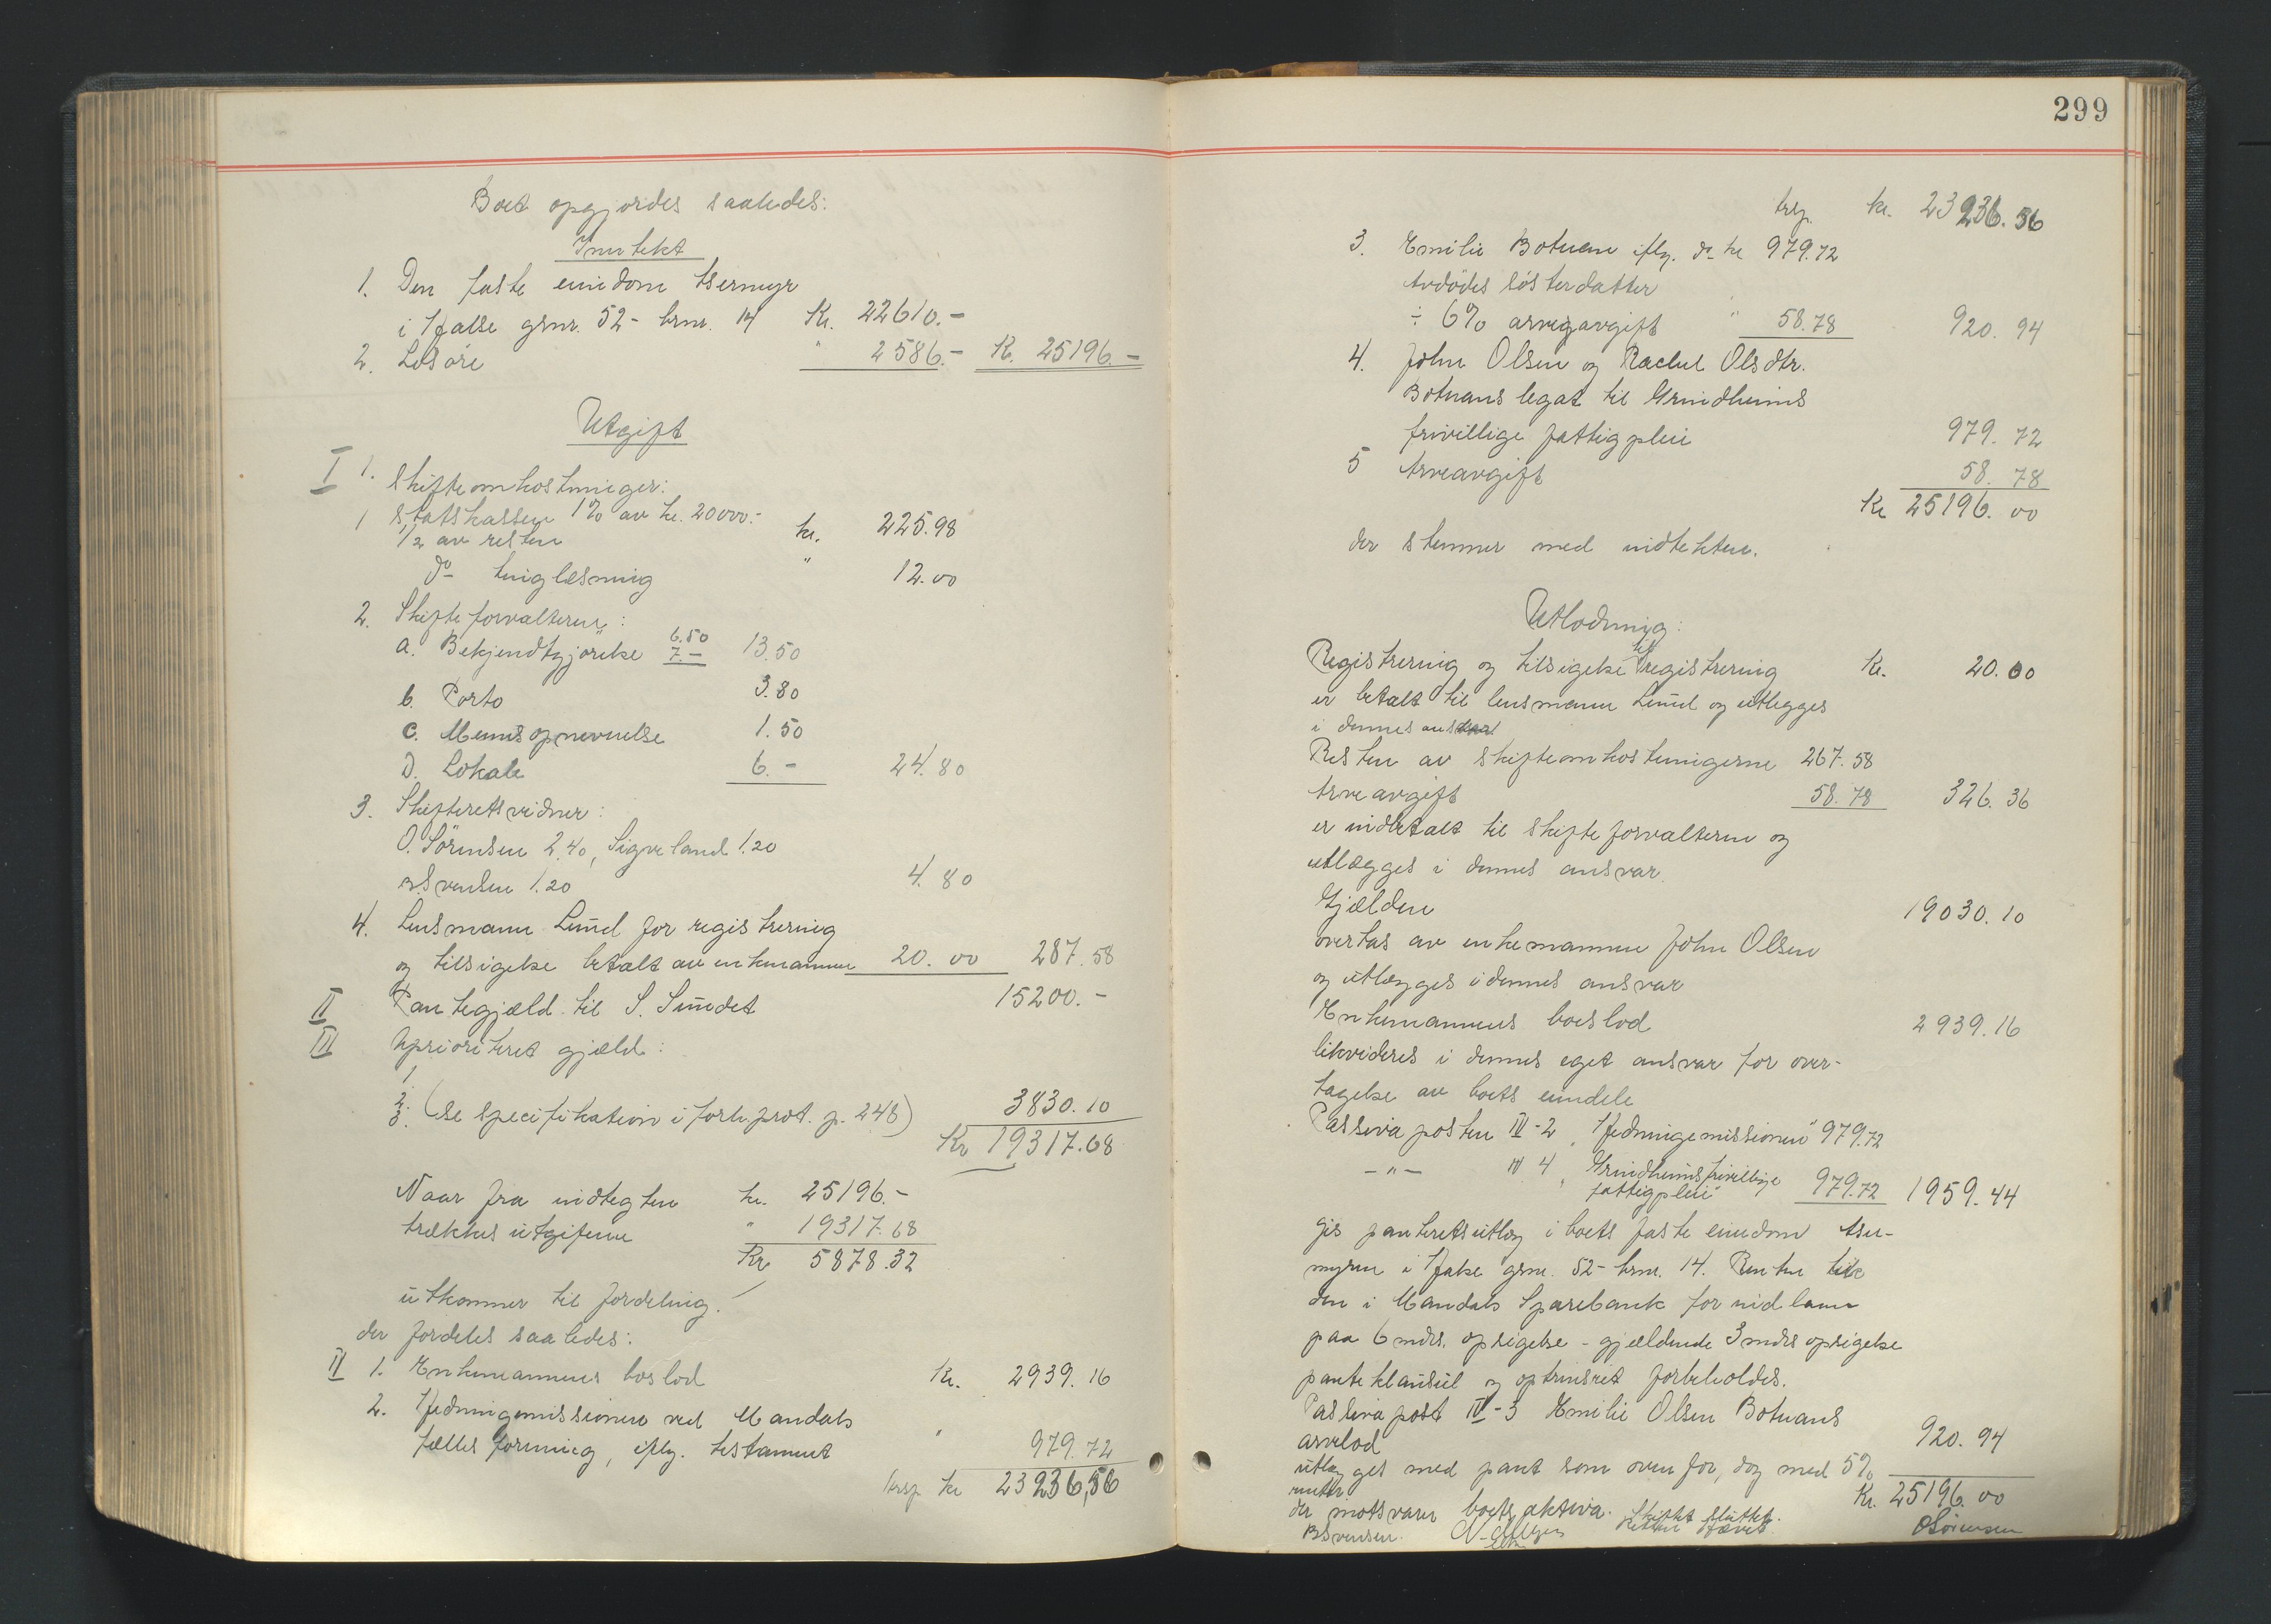 Boet opgjordes saaledes:
Inntekt
1. Den faste eiendom Asemyr
i Halse grnr. 52 - brnr. 14 Kr. 22610.-
2. Løsøre " 2586.- K. 25196.-
Utgift
I 1. Skifteomkostninger:
1 Statskassen 1% av kr. 20000.-
1/2 av resten kr. 225.98
do tinglæsning " 12.00
2. Skifteforvalteren:
a. Bekjendtgjørelse 6.50 7.- 13.50
b. Porto 3.80
c. Mennsopnevnelse 1.50
D. Lokale 6.- 24.80
3. Skifteretsvidner:
O. Sørensen 2.40, Sigveland 1.20
B. Svensen 1.20 4.80
4. Lensmann Lund for registrering
og tilsigelse betalt av enkemannen 20.00 287.58
II Pantegjæld til S. Sundet 15200.-
III Uprioritert gjæld:
1.
2.
3. (se specifikation i forh.prot. p. 248) 3830.10
Kr 19317.68
Naar fra indtegten kr. 25196.-
trækkes utgifterne " 19317.68
Kr 5878.32
utkommer til fordeling.
der fordeles saaledes:
IV 1. Enkemannens boslod Kr. 2939.16
2. Hedningemissionen ved Mandals
fælles forening, iflg. testament " 979.72
trsp kr 23236,56
299
trsp. kr. 23236.56
3. Emilie Botnan iflg. do kr 979.72
Avdødes søsterdatter
÷ 6% arveavgift " 58.78 920.94
4. John Olsen og Rachel Olsdtr.
Botnans legat til Grindheims
frivillige fattigpleie 979.72
5 Arveavgift 58.78
Kr 25196.00
der stemmer med indtekten.
Utlodning:
Registrering og tilsigelse til registrering Kr. 20.00
er betalt til lensmann Lund og utlegges
i dennes ansvar
Resten av skifteomkostningerne 267.58
Arveavgift 58.78 326.36
er indbetalt til skifteforvalteren og
utlægges i dennes ansvar
Gjælden 19030.10
overtas av enkemannen John Olsen
og utlægges i dennes ansvar
Enkemannens boslod 2939.16
likvideres i dennes eget ansvar for over-
tagelse av boets eiendele
Passiva posten IV-2 "Hedningemissionen" 979.72
-"- IV 4 "Grindheims frivillige
fattigpleie" 979.72 1959.44
gis panteretsutlæg i boets faste eiendom Ase-
myren i Halse grnr. 52 - brnr. 14. Renten lik
den i Mandals Sparebank for innlaan
paa 6 mdrs. opsigelse - gjældende 3 mdrs opsigelse
panteklausul og optrinsret forbeholdes.
Passiva post IV-3 Emilie Olsen Botnans
arvelod 920.94
utlægges med pant som oven for, dog med 5%
renter Kr. 25196.00
der motsvarer boets aktiva. Skiftet sluttet.
Retten hævet
B Svensen. O Sørensen